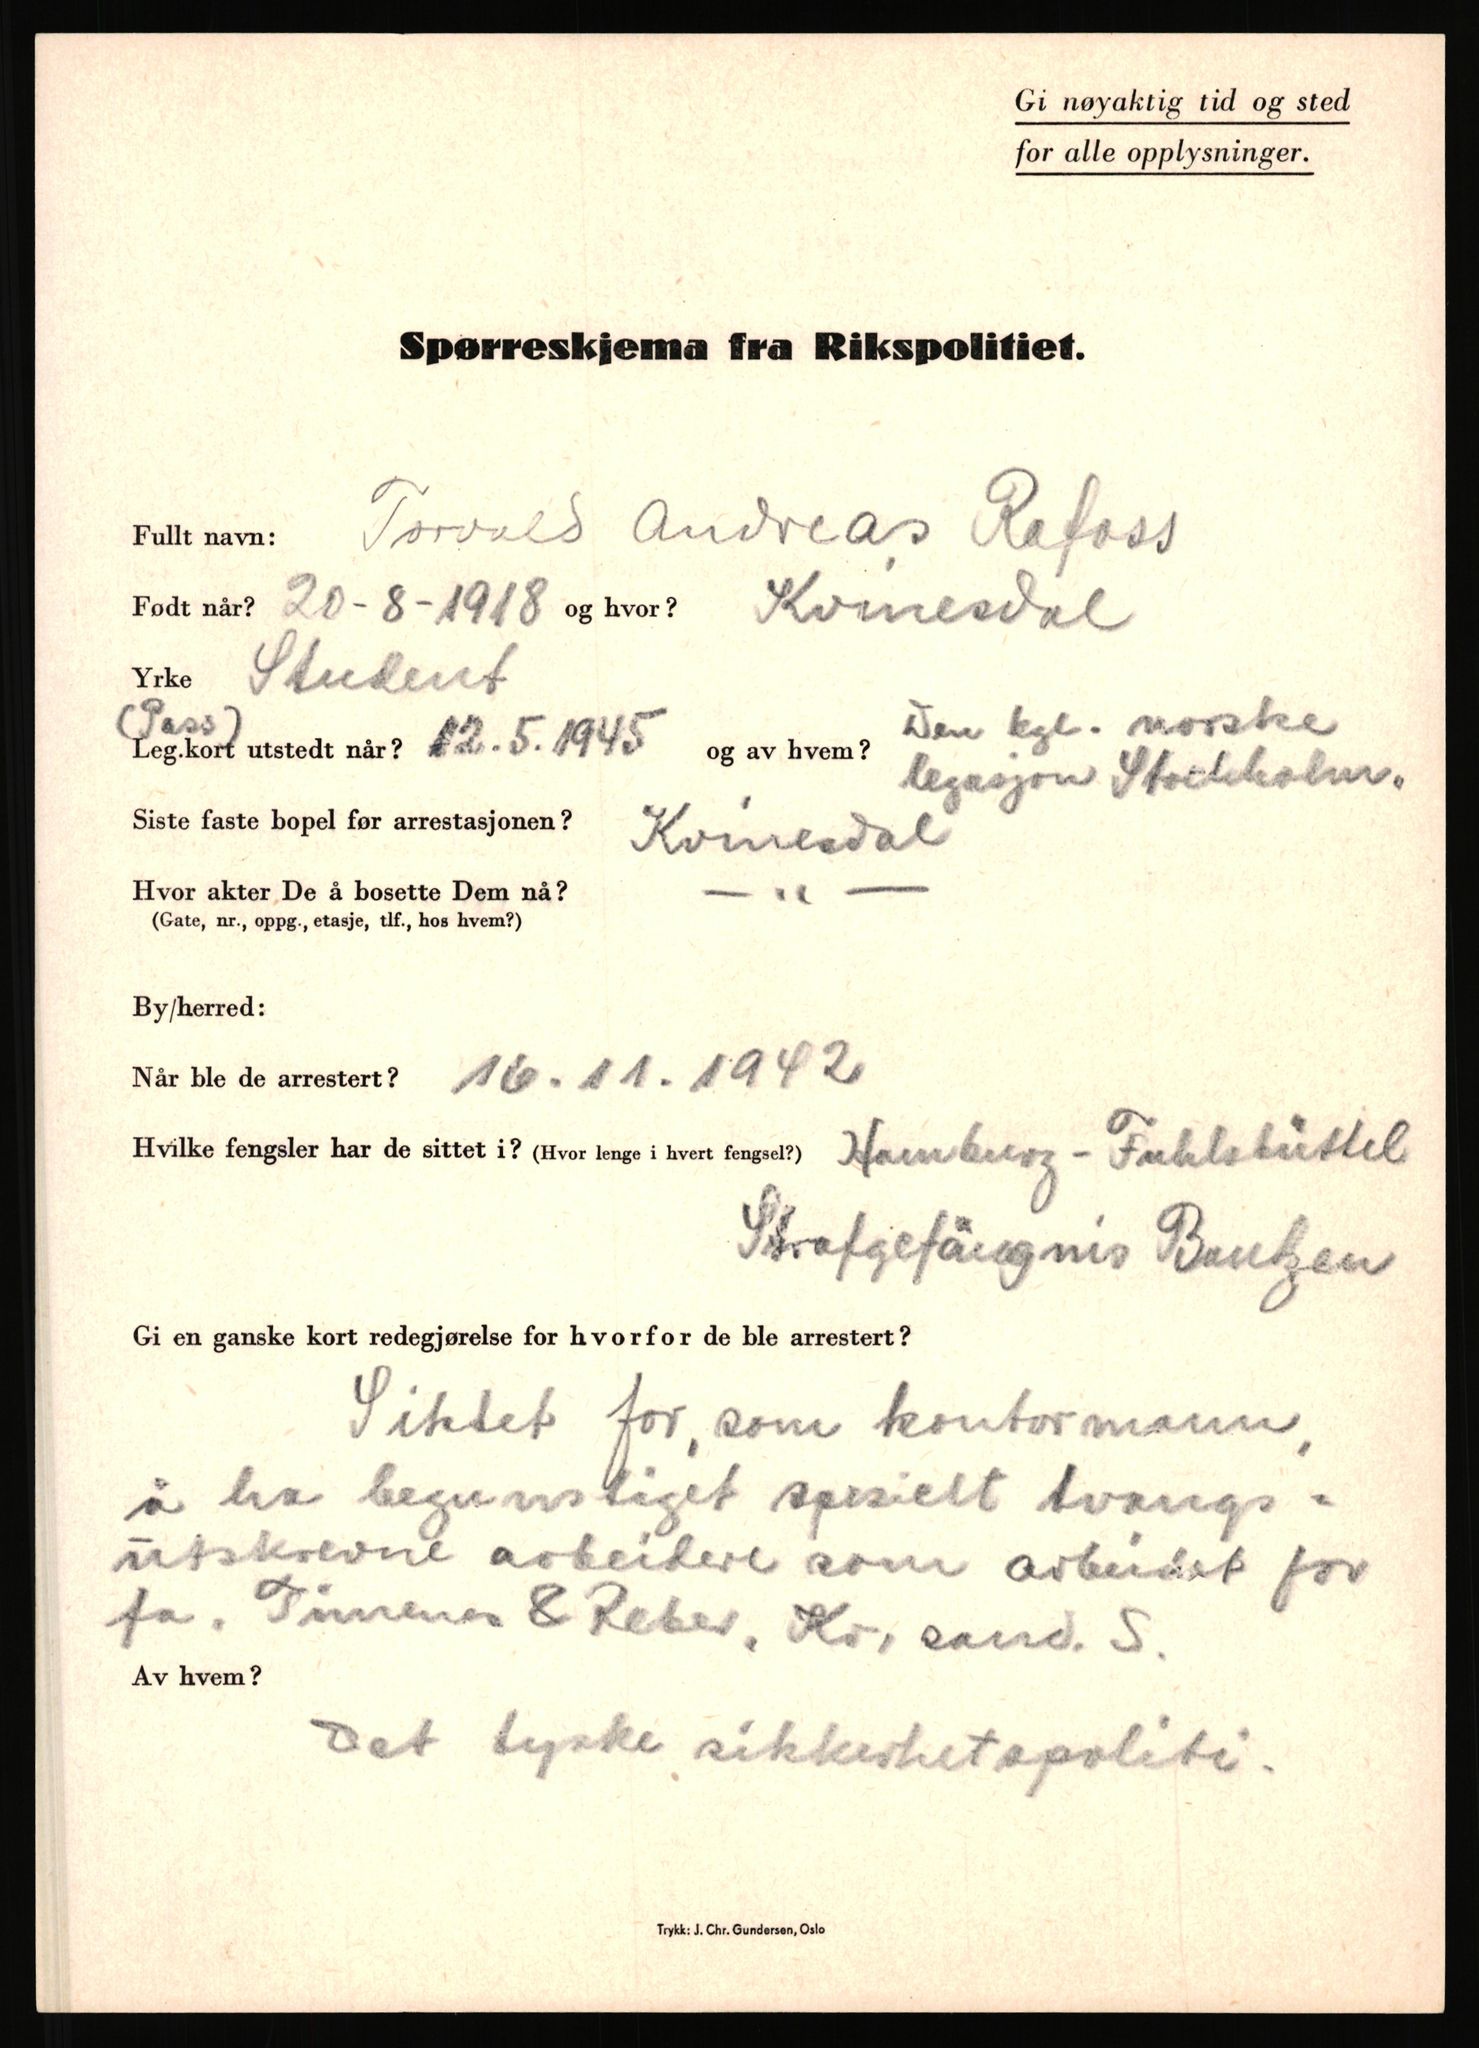 Gi nøyaktig tid og sted
for alle opplysninger.
Spørreskjema fra Rikspolitiet.
Fullt navn: Torvald Andreas Rafoss
Født når? 20-8-1918 og hvor? Kvinesdal
Yrke Student
(Pass)
Leg.kort utstedt når? 12.5.1945 og av hvem? Den kgl. norske
legasjon Stockholm.
Siste faste bopel før arrestasjonen? Kvinesdal
Hvor akter De å bosette Dem nå? — " —
(Gate, nr., oppg., etasje, tlf., hos hvem?)
By/herred:
Når ble de arrestert? 16.11.1942
Hvilke fengsler har de sittet i? (Hvor lenge i hvert fengsel?) Hamburg - Fuhlsbüttel
Strafgefängnis Bautzen
Gi en ganske kort redegjørelse for hvorfor de ble arrestert?
Siktet for, som kontormann,
å ha begunstiget spesielt tvangs-
utskrevne arbeidere som arbeidet for
fa. & Reber, Kr. sand. S.
Av hvem?
Det tyske sikkerhetspoliti.
Trykk: J. Chr. Gundersen, Oslo